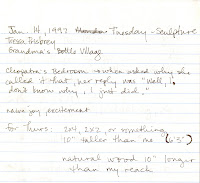 Jan. 14, 1992 Tuesday - Sculpture
Tressa Prisbrey
Grandma's Bottle Village
Cleopatra's Bedroom → when asked why she
called it that, her reply was "Well, I
don't know why, I just did."
naive joy, excitement
for hers: 2x4, 2x2, or something
10" taller than me (6'3")
natural wood 10" longer
than my reach